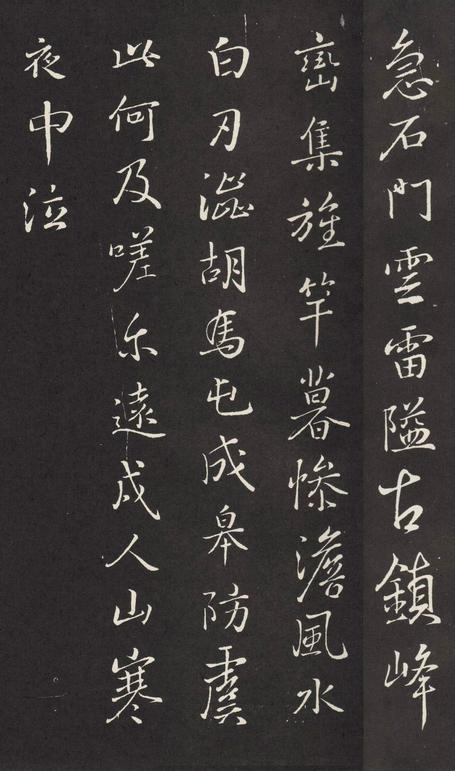 急石門雲雷隘古鎮峰
巒集旌竿暮慘澹風水
白刃澁胡馬屯成皋防虞
此何及嗟尔遠戍人山寒
夜中泣